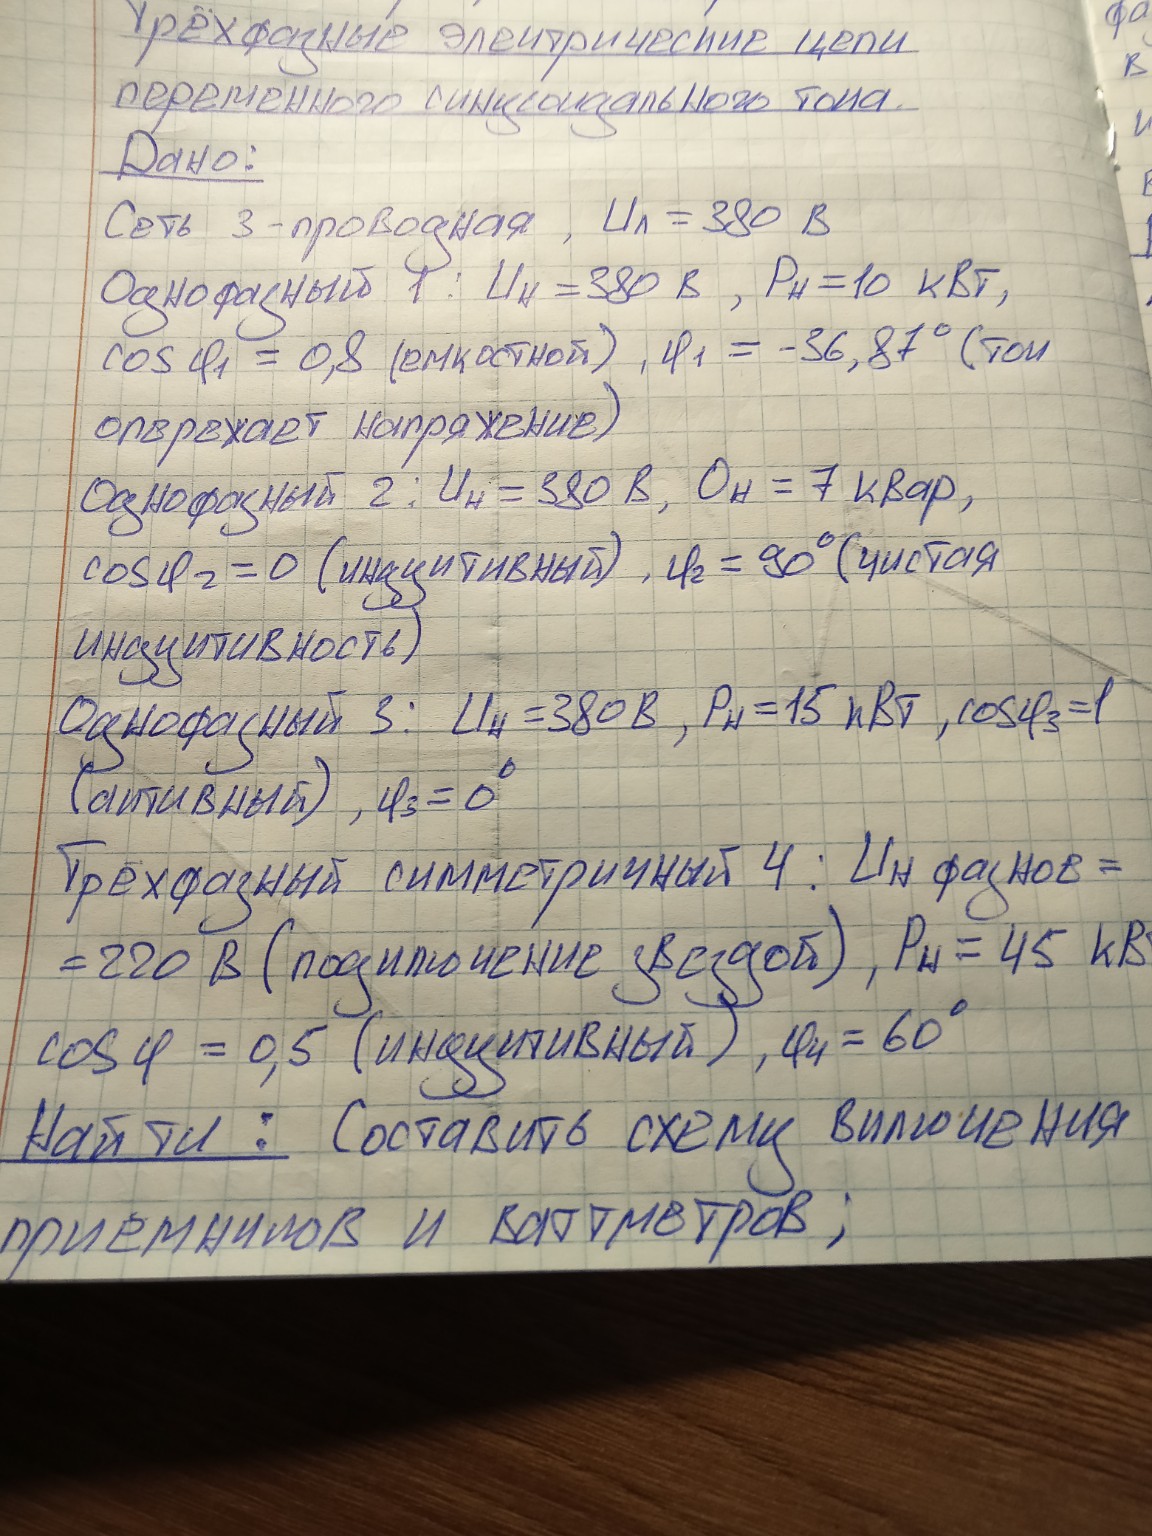 Трёхфазные электрические цепи
переменного синусоидального тока.
Дано:
Сеть 3-проводная, Uл = 380 В
Однофазный 1: Uн = 380 В, Рн = 10 кВт,
cos φ1 = 0,8 (емкостной), φ1 = -36,87° (ток
опережает напряжение)
Однофазный 2: Uн = 380 В, Qн = 7 кВар,
cosφ2 = 0 (индуктивный), φ2 = 90° (чистая
индуктивность)
Однофазный 3: Uн = 380 В, Рн = 15 кВт, cosφ3 = 1
(активный), φ3 = 0°
Трёхфазный симметричный 4: Uн фазнов =
= 220 В (подключение звездой), Рн = 45 кВт
cos φ = 0,5 (индуктивный), φ4 = 60°
Найти: Составить схему включения
приемников и ваттметров;
фа
в